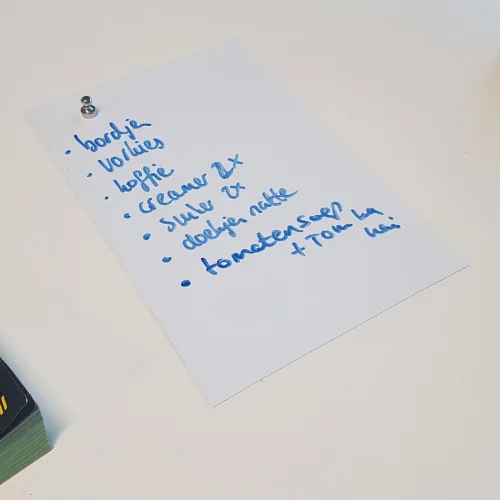 • bordjes
• vorkjes
• koffie
• creamer 2x
• suiker 2x
• doekjes natte
• tomatensoep
+ Tom ka
kai